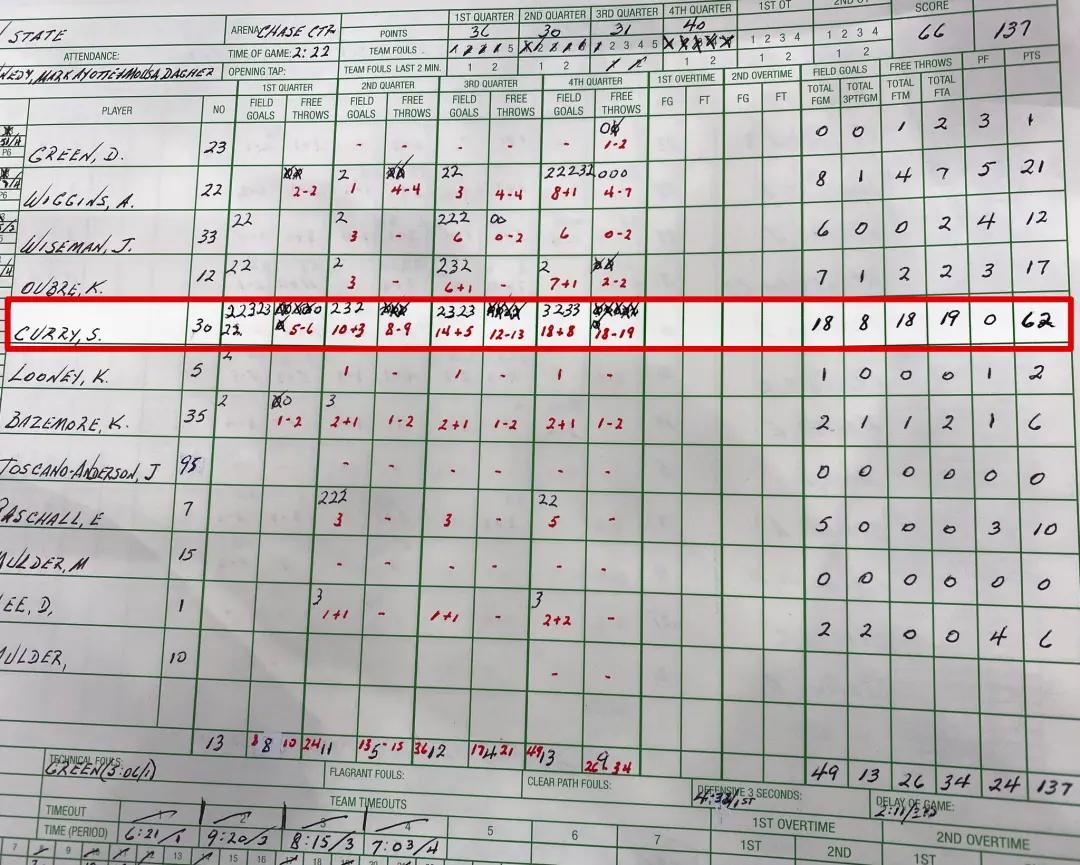 1ST QUARTER 2ND QUARTER 3RD QUARTER 4TH QUARTER 1ST OT 2ND OT SCORE
STATE ARENA CHASE CTR POINTS 36 30 31 40 66 137
ATTENDANCE: TIME OF GAME: 2:22 TEAM FOULS 1 2 3 4 5 1 2 3 4 5 1 2 3 4 5 1 2 3 4 5 1 2 3 4 1 2 3 4
MARK AYOTTE + MOUSA DAGHER OPENING TAP: TEAM FOULS LAST 2 MIN. 1 2 1 2 1 2 1 2 1 2 1 2
1ST QUARTER 2ND QUARTER 3RD QUARTER 4TH QUARTER 1ST OVERTIME 2ND OVERTIME FIELD GOALS FREE THROWS PF PTS
PLAYER NO FIELD GOALS FREE THROWS FIELD GOALS FREE THROWS FIELD GOALS FREE THROWS FIELD GOALS FREE THROWS FG FT FG FT TOTAL FGM TOTAL 3PTFGM TOTAL FTM TOTAL FTA
GREEN, D. 23 - - - - - 1-2 0 0 1 2 3 1
WIGGINS, A. 22 2-2 2 1 4-4 22 3 4-4 22232 8+1 000 4-7 8 1 4 7 5 21
WISEMAN, J. 33 22 2 3 - 222 6 00 0-2 6 0-2 6 0 0 2 4 12
OUBRE, K. 12 22 2 3 - 232 6+1 - 2 7+1 2-2 7 1 2 2 3 17
CURRY, S. 30 22323 22 5-6 232 10+3 8-9 2323 14+5 12-13 3233 18+8 18-19 18 8 18 19 0 62
LOONEY, K. 5 2 1 - 1 - 1 - 1 0 0 0 1 2
BAZEMORE, K. 35 2 1-2 3 2+1 1-2 2+1 1-2 2+1 1-2 2 1 1 2 1 6
TOSCANO-ANDERSON, J 95 - - - - - - 0 0 0 0 0 0
PASCHALL, E 7 222 3 - 3 - 22 5 - 5 0 0 0 3 10
MULDER, M 15 - - - - - - 0 0 0 0 0 0
LEE, D. 1 3 1+1 - 1+1 - 3 2+2 - 2 2 0 0 4 6
MULDER, 10 - -
13 8 8 10 24 11 13 5 - 15 36 12 17 4 21 49 13 26 9 34 49 13 26 34 24 137
TECHNICAL FOULS: FLAGRANT FOULS: CLEAR PATH FOULS: DEFENSIVE 3 SECONDS: DELAY OF GAME:
GREEN (5:06/1) 4:38/1ST 2:11/2ND
TEAM TIMEOUTS 1ST OVERTIME 2ND OVERTIME
TIMEOUT 1 2 3 4 5 6 7 1ST 2ND 1ST
TIME (PERIOD) 6:21/1 9:20/3 8:15/3 7:03/4